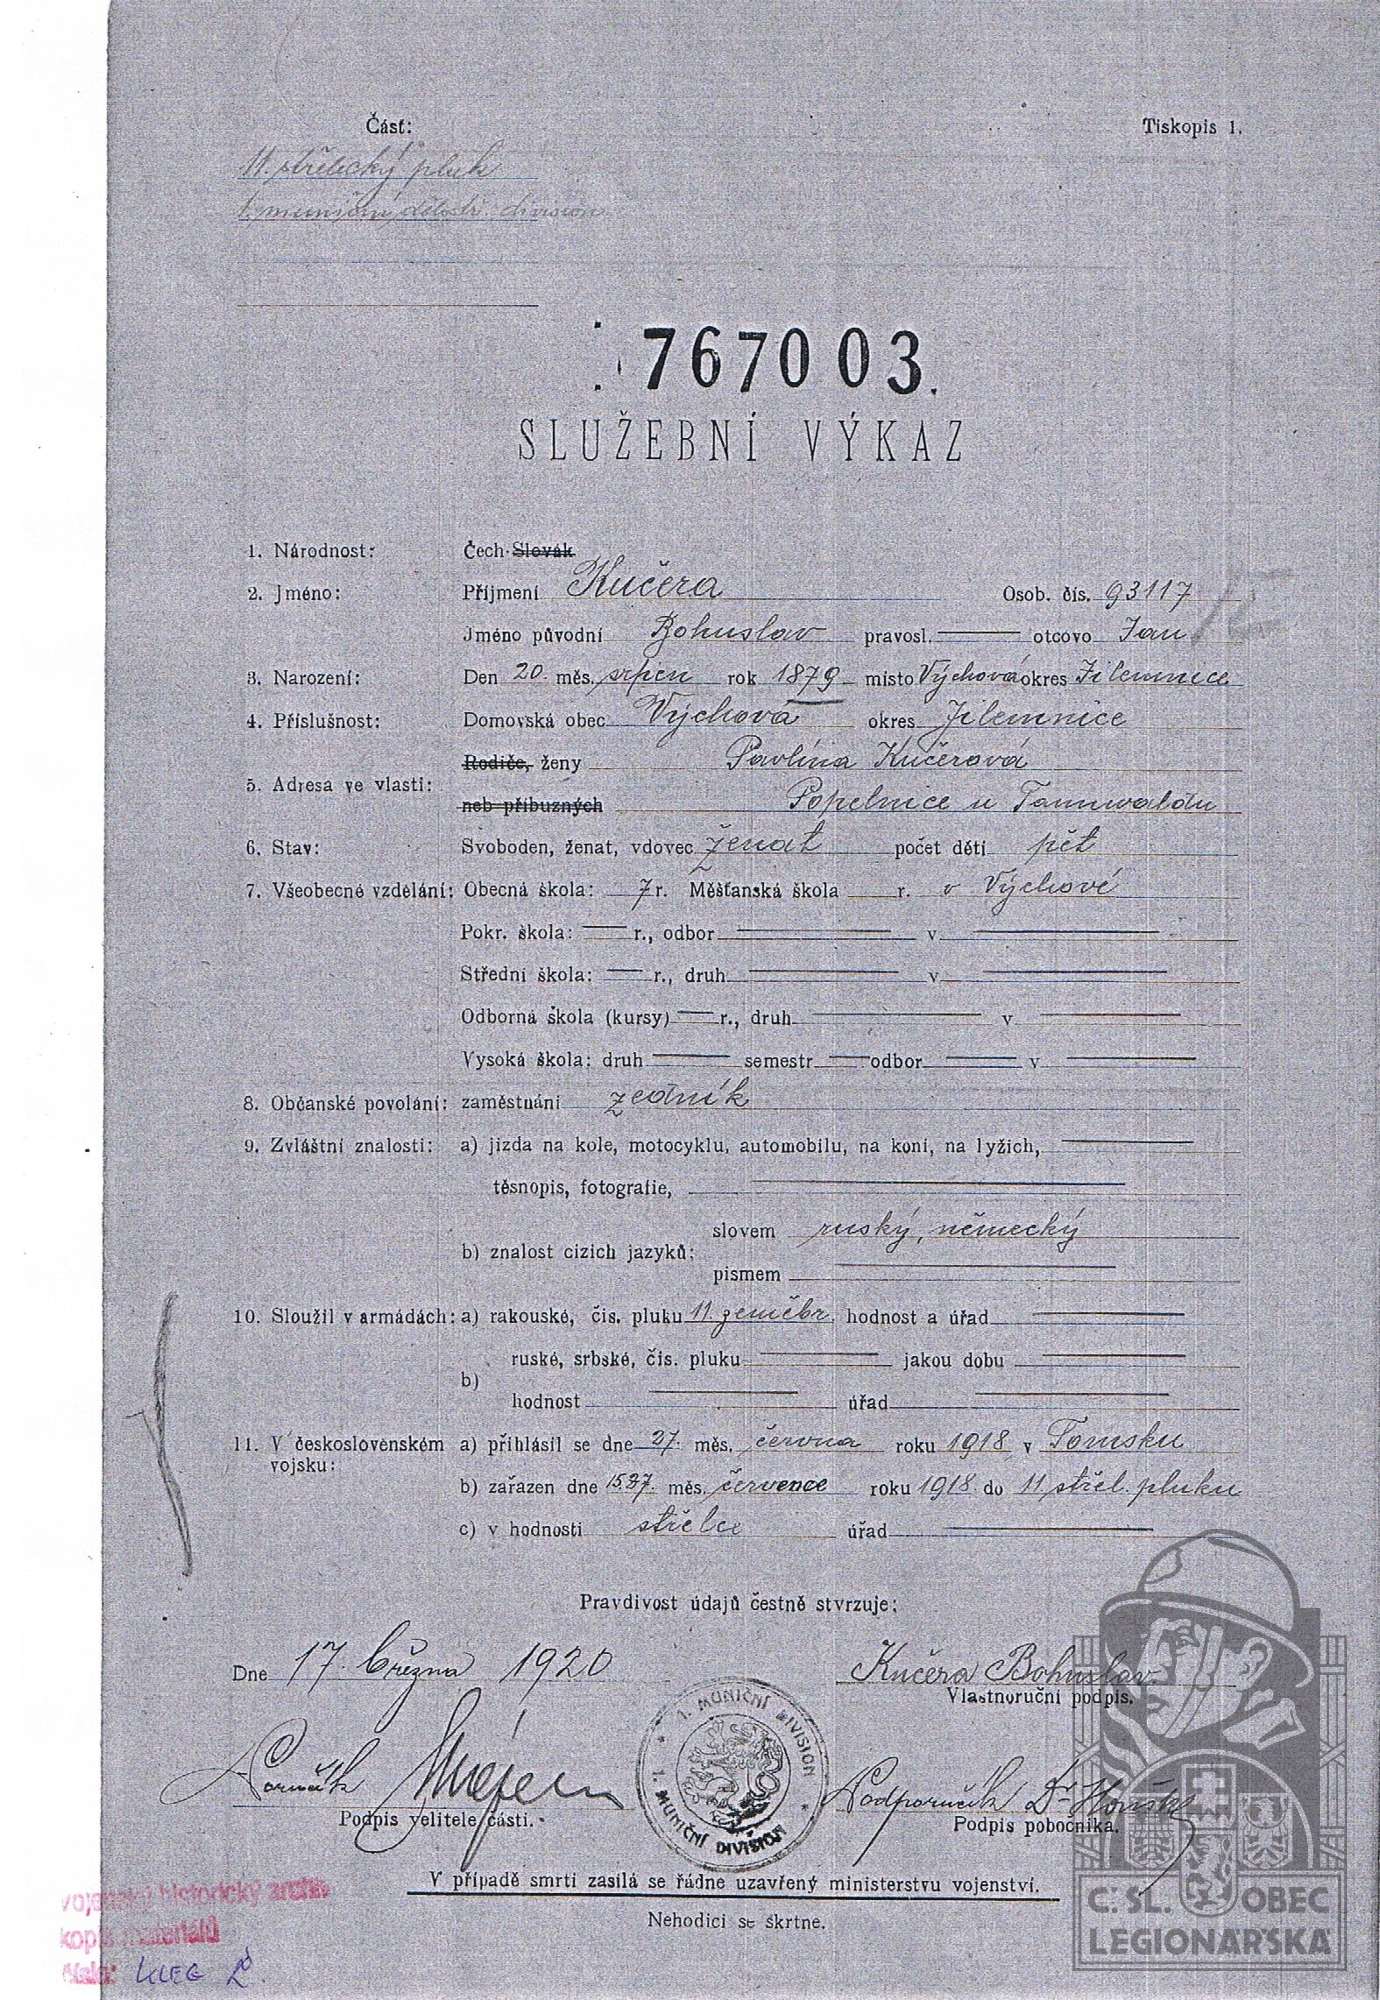 Část: Tiskopis 1.
11. střelecký pluk
1. muniční dělostř. division
767003.
SLUŽEBNÍ VÝKAZ
1. Národnost: Čech-Slovák
2. Jméno: Příjmení Kučera Osob. čís. 93117
Jméno původní Bohuslav pravosl. otcovo Jan
3. Narození: Den 20. měs. srpen rok 1879 místo Výchová okres Jilemnice
4. Příslušnost: Domovská obec Výchova okres Jilemnice
Rodiče, ženy Pavlína Kučerová
5. Adresa ve vlasti:
neb příbuzných Popelnice u Tannwaldu
6. Stav: Svoboden, ženat, vdovec ženat počet dětí pět
7. Všeobecné vzdělání: Obecná škola: 7 r. Měšťanská škola r. v Výchové
Pokr. škola: r., odbor v
Střední škola: r., druh v
Odborná škola (kursy) r., druh v
Vysoká škola: druh semestr odbor v
8. Občanské povolání: zaměstnání zedník
9. Zvláštní znalosti: a) jizda na kole, motocyklu, automobilu, na koni, na lyžich,
těsnopis, fotografie,
slovem ruský, německý
b) znalost cizich jazyků:
pismem
10. Sloužil v armádách: a) rakouské, čis. pluku 11. zeměbr. hodnost a úřad
ruské, srbské, čis. pluku jakou dobu
b)
hodnost úřad
11. V československém a) přihlásil se dne 27. měs. června roku 1918 v Tomsku
vojsku:
b) zařazen dne měs. července roku 1918 do 11 střel. pluku
c) v hodnosti střelce úřad
Pravdivost údajů čestně stvrzuje:
Dne 17. března 1920 Kučera Bohuslav
Vlastnoruční podpis.
1. MUNIČNÍ DIVISION
1. MUNIČNÍ DIVISION
Poručík Podporučík Dr.
Podpis velitele části. Podpis pobočníka.
V případě smrti zasílá se řádne uzavřený ministerstvu vojenství.
Nehodici se škrtne.
vojenský historický archiv
kopie materiálů
číslo: KLEG
Č. SL. OBEC
LEGIONÁŘSKÁ